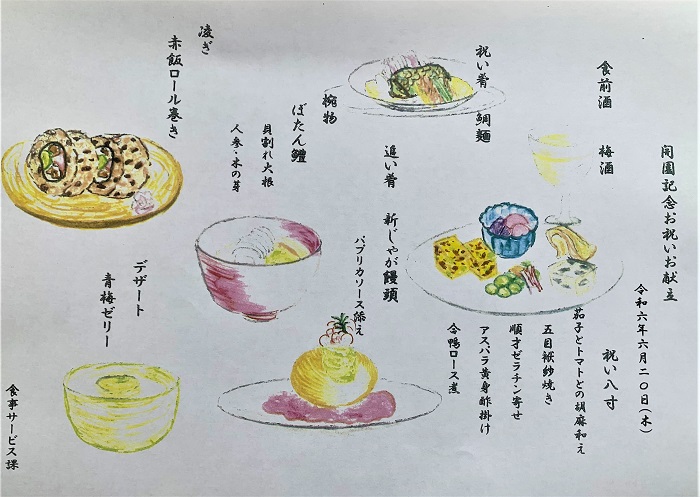 開園記念お祝いお献立
令和六年六月二〇日(木)
食前酒 梅酒
祝い八寸
茄子とトマトとの胡麻和え
五目袱紗焼き
順才ゼラチン寄せ
アスパラ黄身酢掛け
合鴨ロース煮
祝い肴 鯛麺
追い肴 新じゃが饅頭
パプリカソース添え
椀物
ぼたん鱧
貝割れ大根
人参・木の芽
凌ぎ
赤飯ロール巻き
デザート
青梅ゼリー
食事サービス課